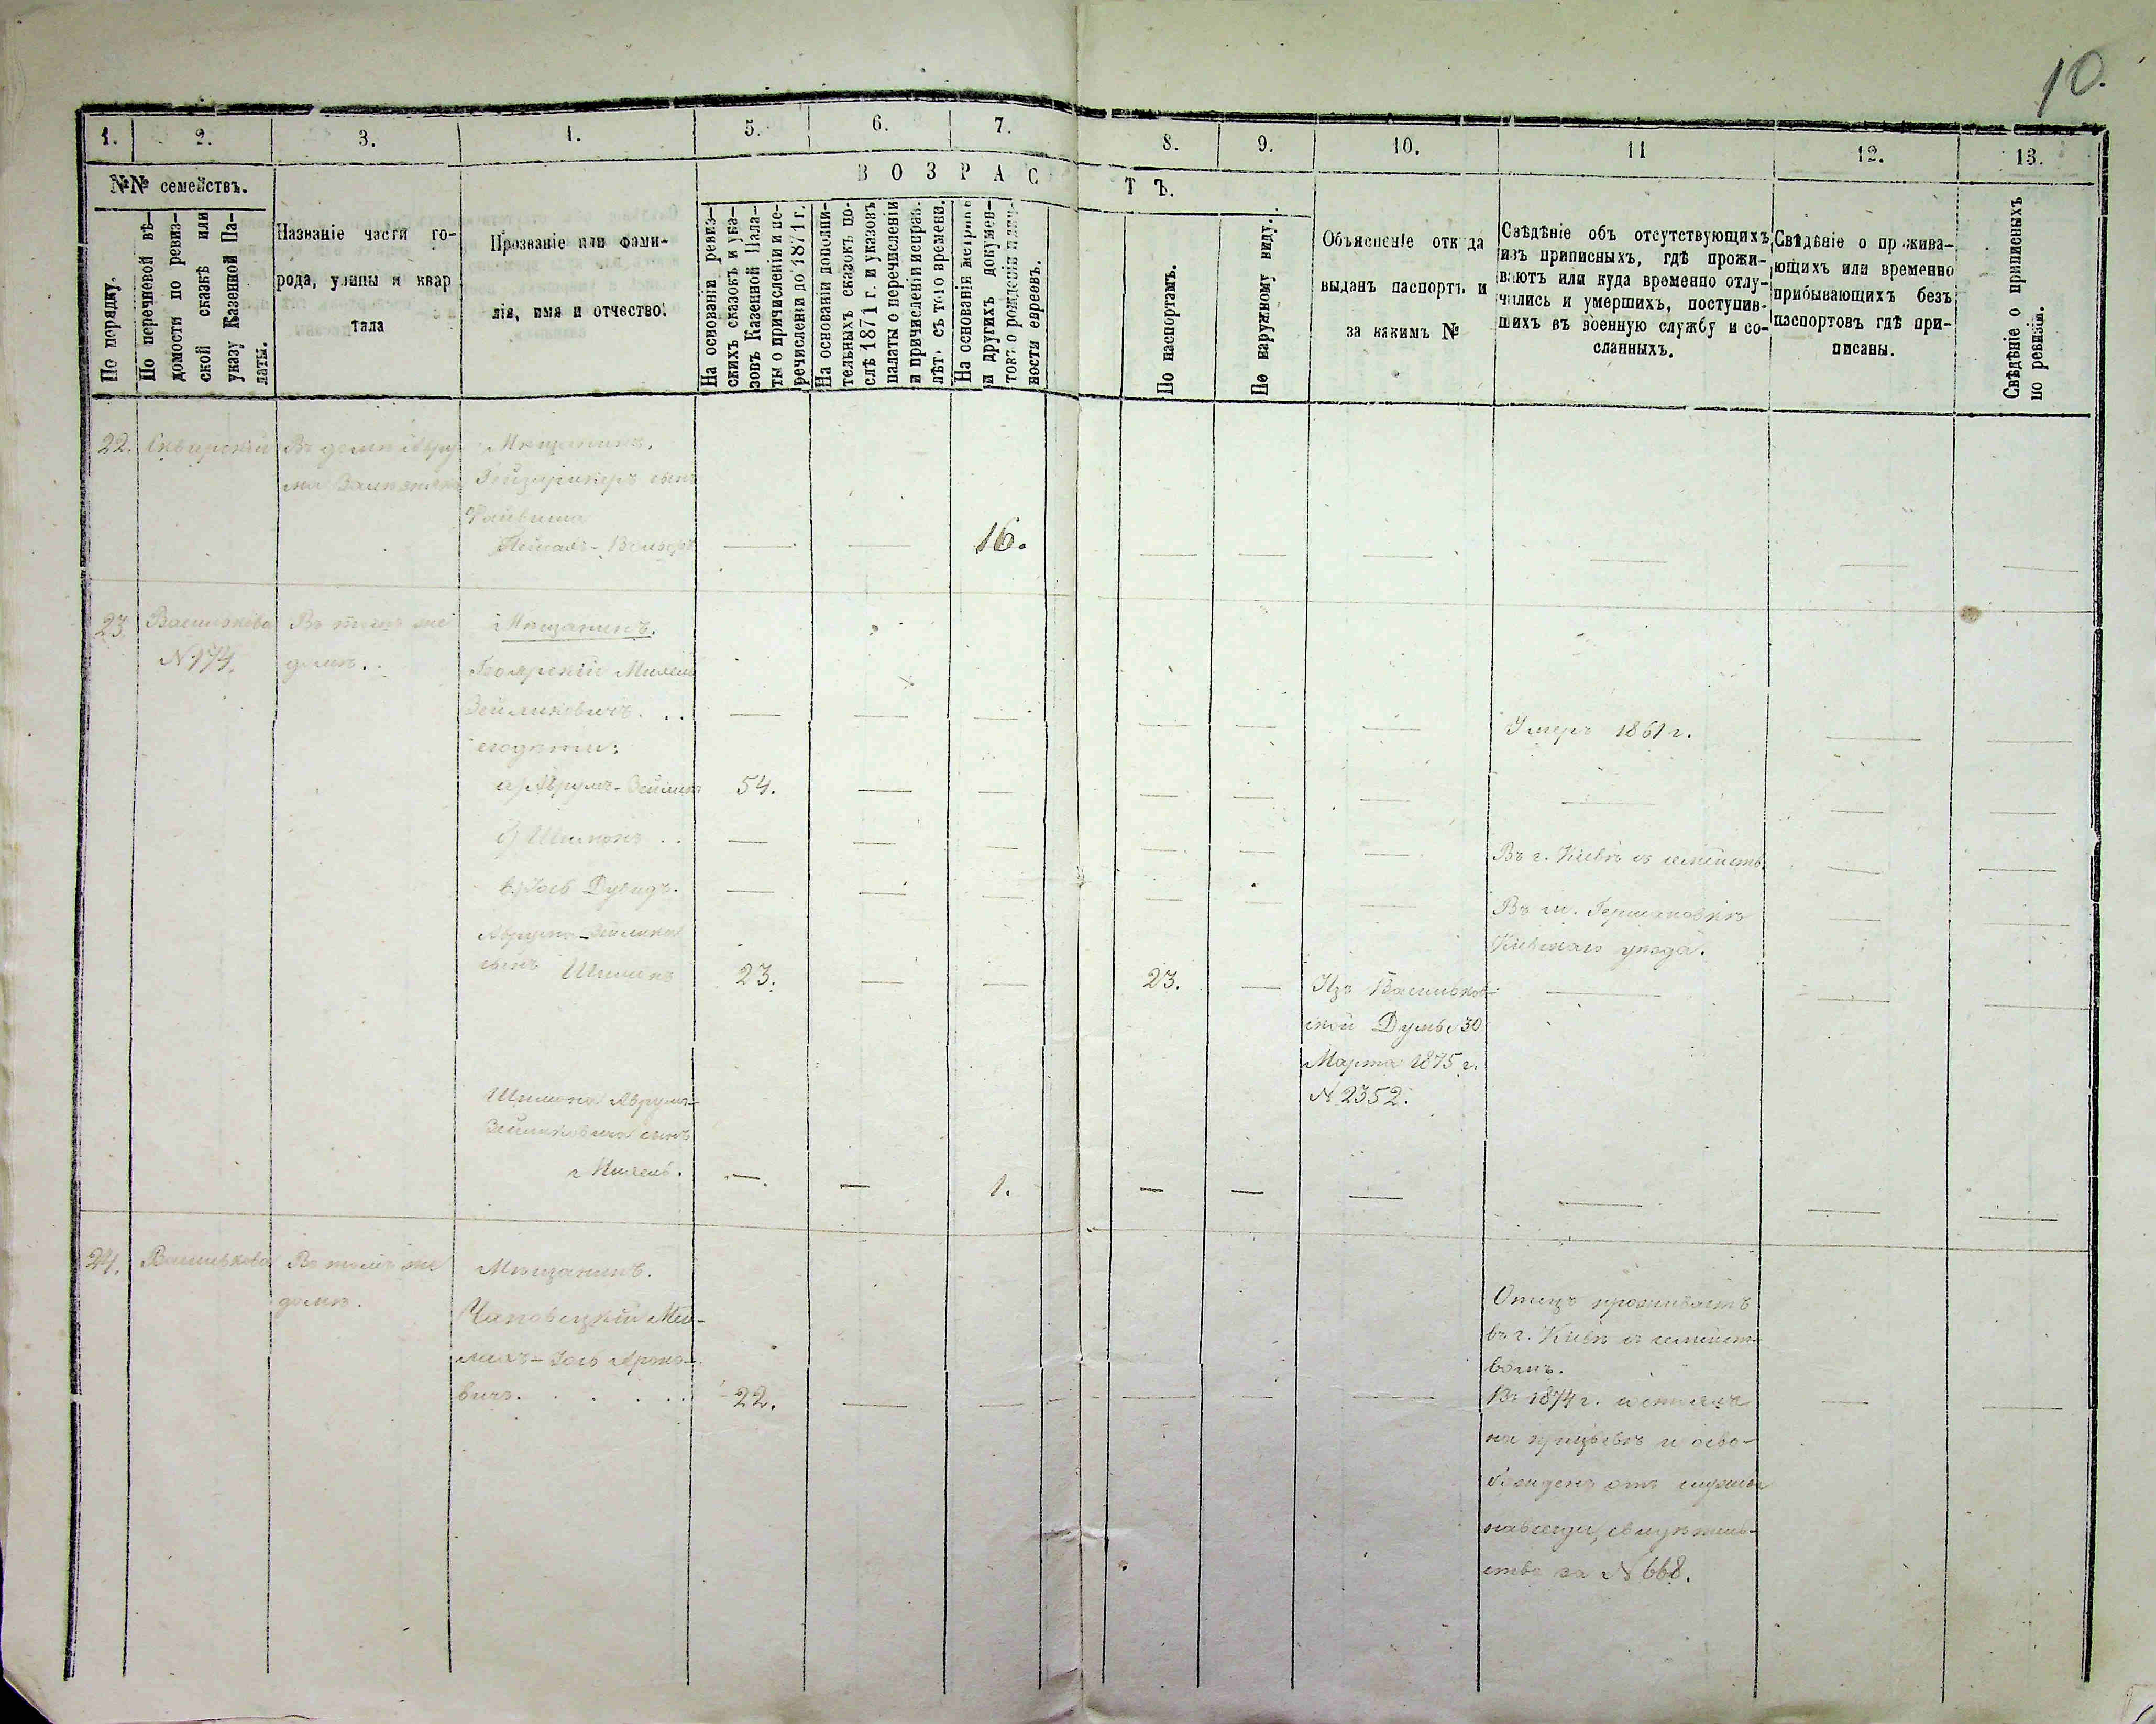 10.
1. 2. 3. 4. 5. 6. 7. 8. 9. 10. 11 12. 13.
№№ семействъ.
По порядку.
По перечневой вѣ-
домости по ревиз-
ской сказкѣ или
указу Казенной Па-
латы.
Названіе части го-
рода, улицы и квар
тала
Прозваніе или фами-
лія, имя и отчество.
ВОЗРАСТЪ.
На основаніи ревиз-
скихъ сказокъ и ука-
зовъ Казенной Пала-
ты о причисленіи и пе-
речисленіи до 1871 г.
На основаніи дополни-
тельныхъ сказокъ по-
слѣ 1871 г. и указовъ
палаты о перечисленіи
и причисленіи исправ.
лѣтъ съ того времени.
На основаніи метрикъ
и другихъ докумен-
товъ о рожденіи и лич-
ности евреевъ.
По паспортамъ.
По наружному виду.
Объясненіе откуда
выданъ паспортъ и
за какимъ №
Свѣдѣніе объ отсутствующихъ
изъ приписныхъ, гдѣ прожи-
ваютъ или куда временно отлу-
чились и умершихъ, поступив-
шихъ въ военную службу и со-
сланныхъ.
Свѣдѣніе о прожива-
ющихъ или временно
прибывающихъ безъ
паспортовъ гдѣ при-
писаны.
Свѣдѣніе о приписныхъ
по ревизіи.
22. Сквирскій Въ домѣ Авру-
ма
Мѣщанинъ.
сынъ
Файвиша
— — 16. — — — — — —
23. Василькова Въ томъ же
№ 174. домѣ.
Мѣщанинъ.
Боярскій Михель
Зейликовичъ. . . — — — — — — Умеръ 1861 г. — —
его дѣти:
а) Аврумъ-Зейликъ 54. — — — — — — — —
б) Шимонъ . . — — — — — — Въ г. Кіевѣ съ семейств. — —
в) Іось Дувидъ. — — — — — Въ м. Германовкѣ — —
Кіевскаго уѣзда.
Аврума-Зейлика
сынъ Шимонъ 23. — — 23. — Изъ Васильков-
ской Думы 30
Марта 1875 г.
№ 2352.
— — —
Шимона Аврумъ-
Зейликовича сынъ
Михель. — — 1. — — — — — —
24. Василькова Въ томъ же
домѣ.
Мѣщанинъ.
Чаповецкій Мей-
лахъ-Іось Ароно-
вичъ. . . . . . 22. — — — — —
Отецъ проживаетъ
въ г. Кіевѣ съ семейст-
вомъ.
Въ 1874 г. состоялъ
на призывѣ и осво-
божденъ отъ службы
навсегда, свидѣтель-
ство за № 668.
— —